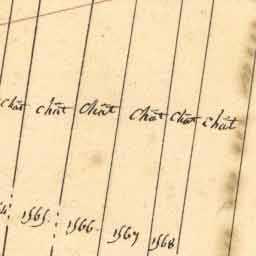 chât chât chât chât chât chât
1565 1566 1567 1568